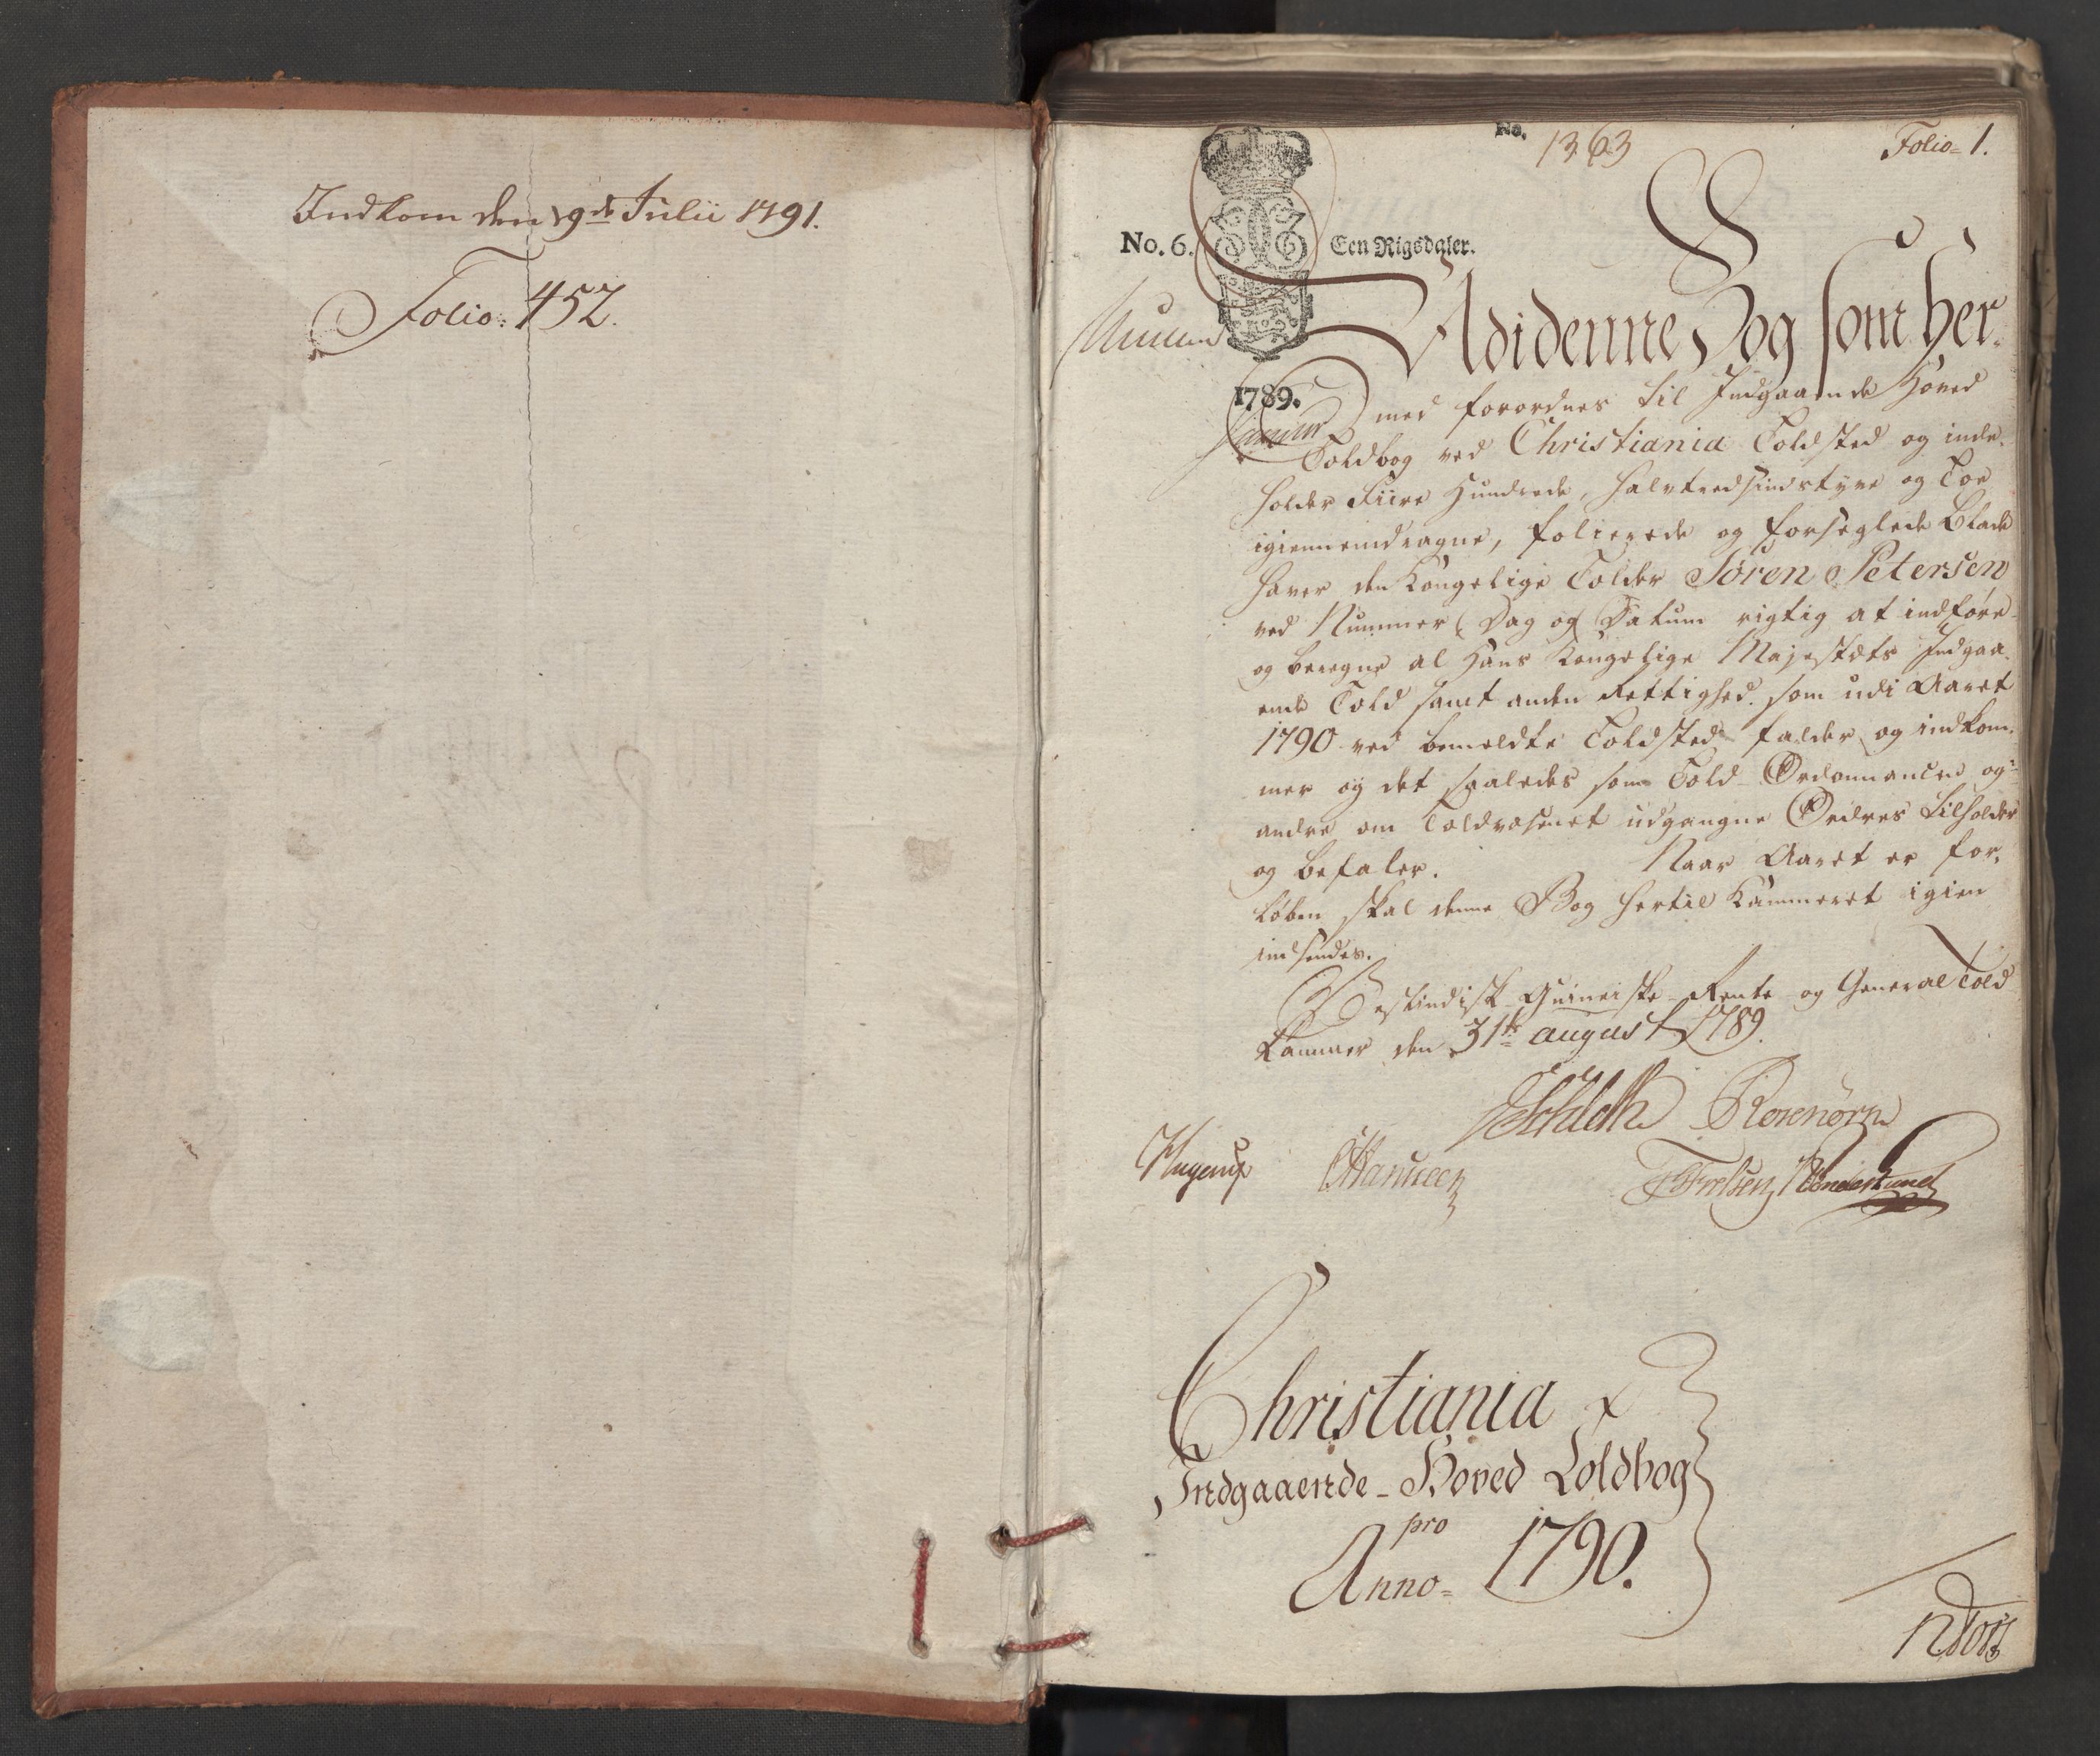 Indkom den 19de Julii 1791.
Folio: 452.
No. 1363
Folio= 1.
No. 6. Een Rigsdaler.
1789.
Udi denne Bog som her-
med forordnes til Indgaaende Hoved
Toldbog ved Christiania Toldsted og inde-
holder Fiire Hundrede, halvtredsindstyve og Toe
igiennemdragne, folierede og forseglede Blade
haver den Kongelige Tolder Søren Petersen
ved Nummer, Dag og Datum rigtig at indføre
og beregne al Hans Kongelige Majestæts Indgaa-
ende Told samt anden Rettighed som udi Aaret
1790 ved bemeldte Toldsted falder og indkom-
mer og det saaledes som Told-Ordonnancen og
andre om Toldvæsenet udgangne Ordres tilholder
og befaler. Naar Aaret er for-
løben skal denne Bog hertil Kammeret igien
indsendes.
Vestindisk-Guineiske Rente- og General Told
Kammer den 31te august 1789.
Rosenørn
Christiania
Indgaaende-Hoved Toldbog
pro
Anno= 1790.